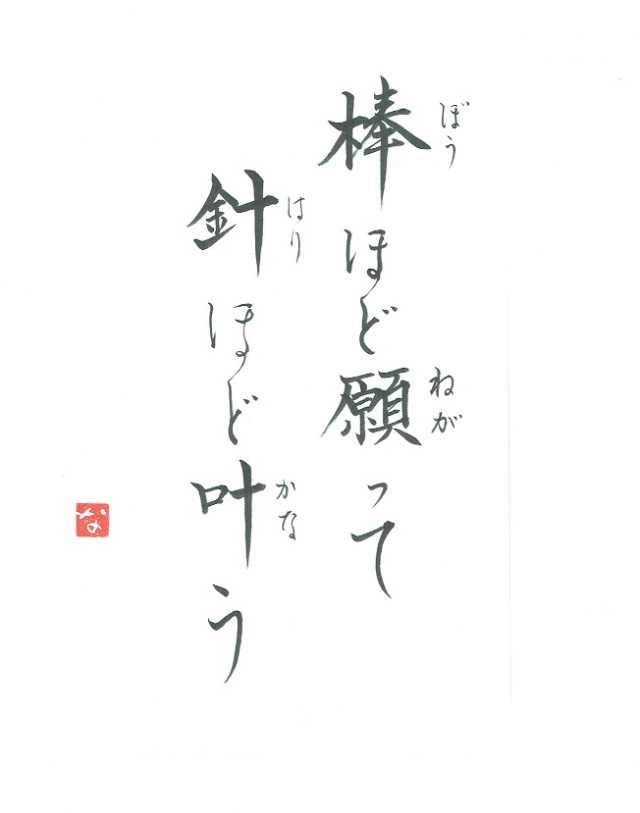 棒ほど願って
ぼう
ねが
針ほど叶う
はり
かな
な